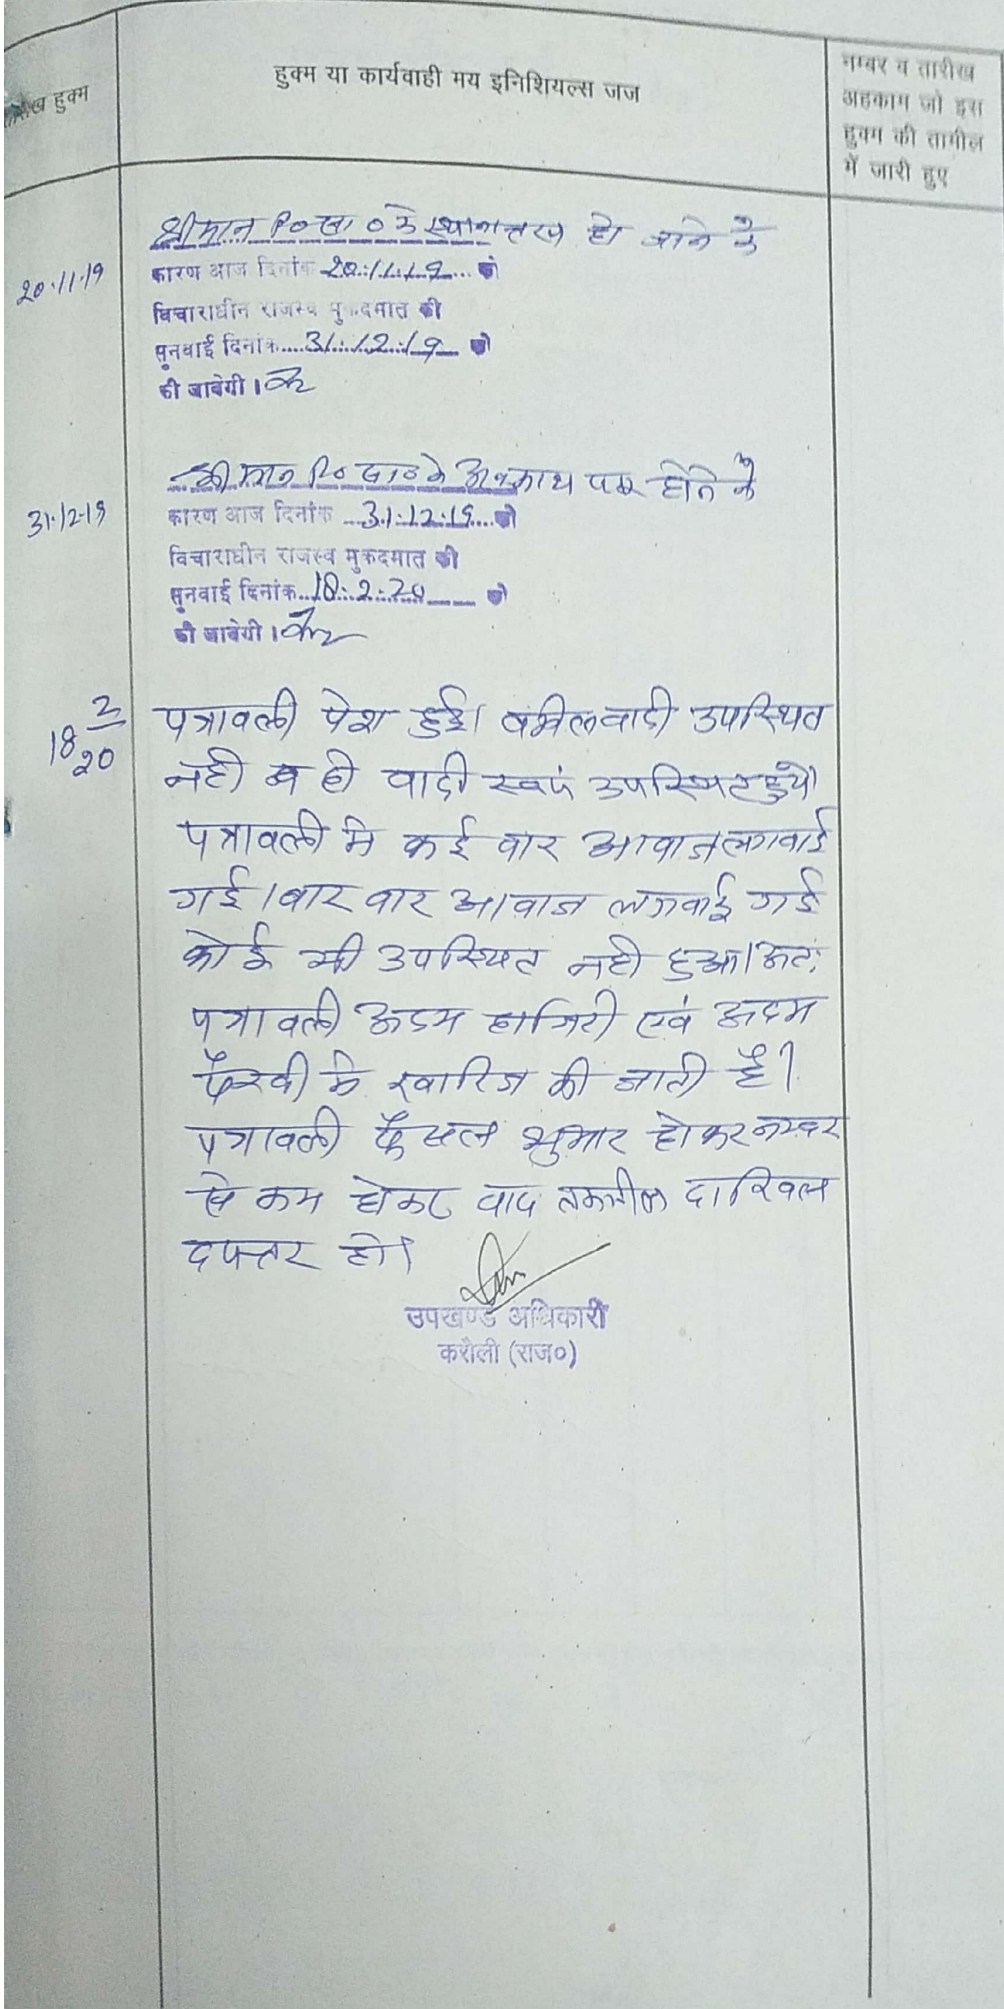 तारीख हुक्म
हुक्म या कार्यवाही मय इनिशियल्स जज
नम्बर व तारीख
अहकाम जो इस
हुक्म की तामील
में जारी हुए
20.11.19
श्रीमान P०सा०के स्थानान्तरण हो जाने के
कारण आज दिनांक 20.11.19 को
विचाराधीन राजस्व मुकदमात की
सुनवाई दिनांक....31.12.19 को
की जावेगी।
31.12.19
श्रीमान P०सा०के अवकाश पर होने के
कारण आज दिनांक ...31.12.19...को
विचाराधीन राजस्व मुकदमात की
सुनवाई दिनांक...18.2.20 को
की जावेगी।
18 2/20
पत्रावली पेश हुई। वकील वादी उपस्थित
नही न ही वादी स्वयं उपस्थित हुये।
पत्रावली मे कई वार आवाज लगवाई
गई। वार वार आवाज लगवाई गई
कोई भी उपस्थित नही हुआ। अतः
पत्रावली अदम हाजिरी एवं अदम
पैरवी मे खारिज की जाती है।
पत्रावली फैसल शुमार होकर नम्बर
से कम होकर वाद तकमील दाखिल
दफ्तर हो।
उपखण्ड अधिकारी
करौली (राज०)